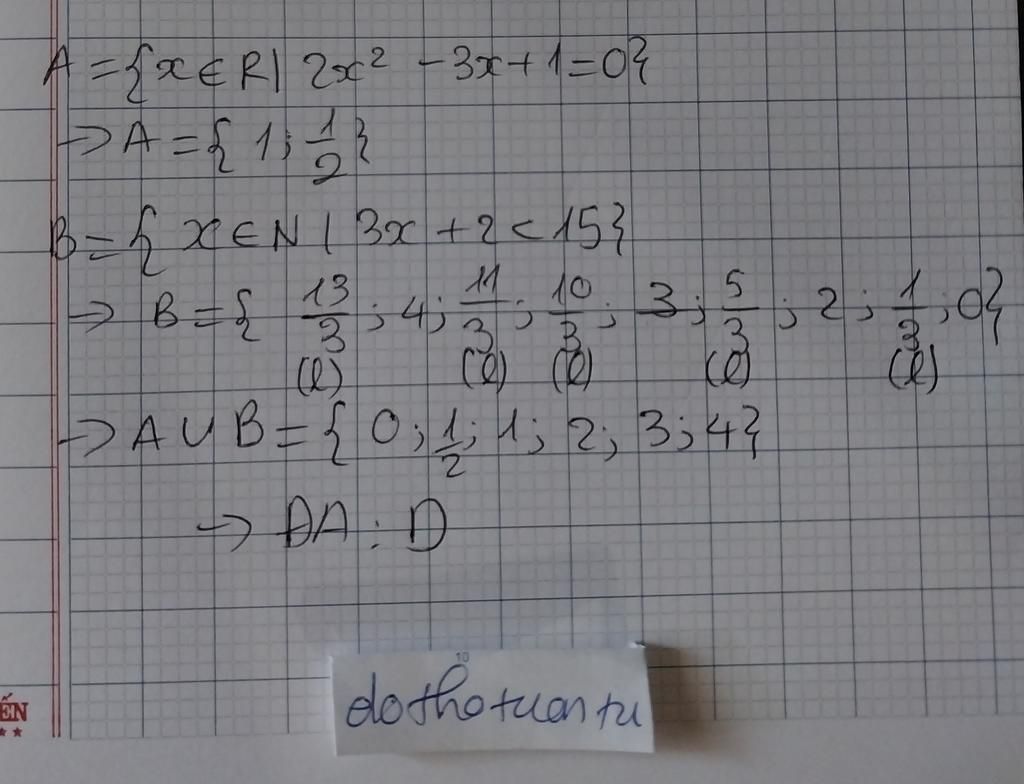 A = {x ∈ R | 2x² - 3x + 1 = 0}
→ A = { 1; 1/2 }
B = { x ∈ N | 3x + 2 < 15}
→ B = { 13/3 ; 4 ; 11/3 ; 10/3 ; 3 ; 5/3 ; 2 ; 1/3 ; 0}
(l) (l) (l) (l) (l)
→ A ∪ B = { 0 ; 1/2 ; 1 ; 2 ; 3 ; 4}
→ ĐA : D
10
dothotuantu
ẾN
★★